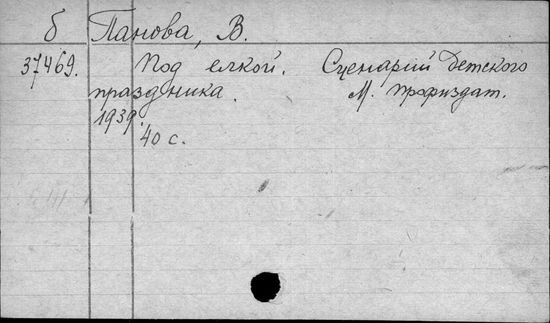 б Панова, В.
37469. Под елкой. Сценарий детского
праздника. М. Профиздат.
1939.
40 с.